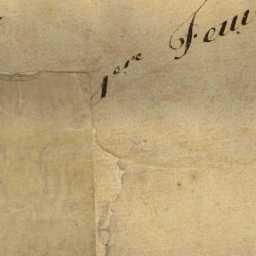 1ere Feui